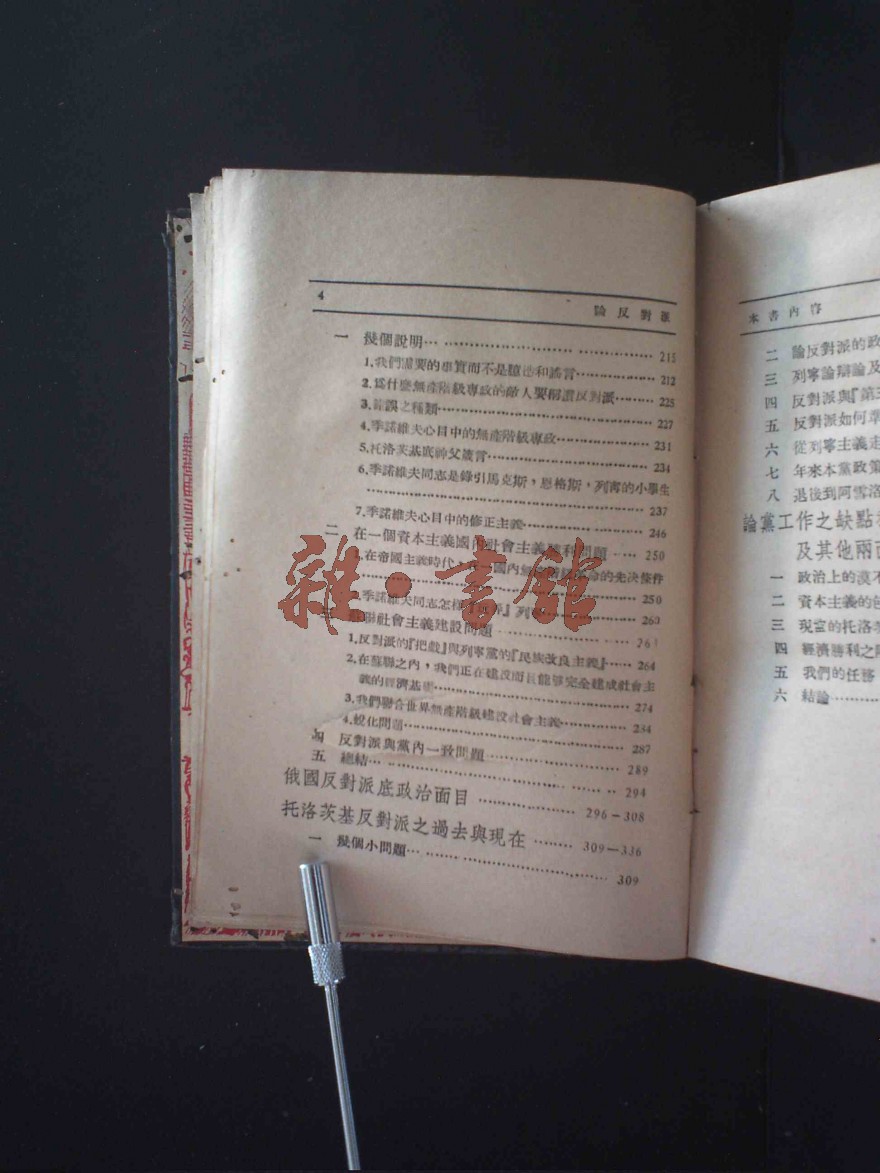 4
論反對派
一 幾個說明 215
1.我們需要的事實而不是臆造和謠言 212
2.爲什麼無產階級專政的敵人要稱讚反對派 225
3.錯誤之種類 227
4.季諾維夫心目中的無產階級專政 231
5.托洛茨基底神父箴言 234
6.季諾維夫同志是錄引馬克斯,恩格斯,列寧的小學生
237
7.季諾維夫心目中的修正主義 246
二 在一個資本主義國內社會主義勝利問題 250
1.在帝國主義時代,在一國內無產階級革命的先决條件
250
季諾維夫同志怎樣 列 260
蘇聯社會主義建設問題 26
1.反對派的『把戲』與列寧黨的『民族改良主義』 264
2.在蘇聯之內,我們正在建設而且能够完全建成社會主
義的經濟基礎 274
3.我們聯合世界無產階級建設社會主義 284
4.蛻化問題 287
四 反對派與黨內一致問題 289
五 總結 294
俄國反對派底政治面目 296-308
托洛茨基反對派之過去與現在 309—336
一 幾個小問題 309
本書內容
二 論反對派的政
三 列寧論辯論及
四 反對派與『第三
五 反對派如何準
六 從列寧主義走
七 年來本黨政策
八 退後到阿雪洛
論黨工作之缺點
及其他兩面
一 政治上的漠不
二 資本主義的包
三 現室的托洛茨
四 經濟勝利之
五 我們的任務
六 結論
雜·書館